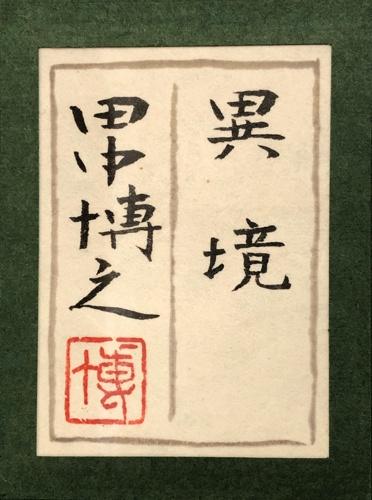 異境
田中博之
博